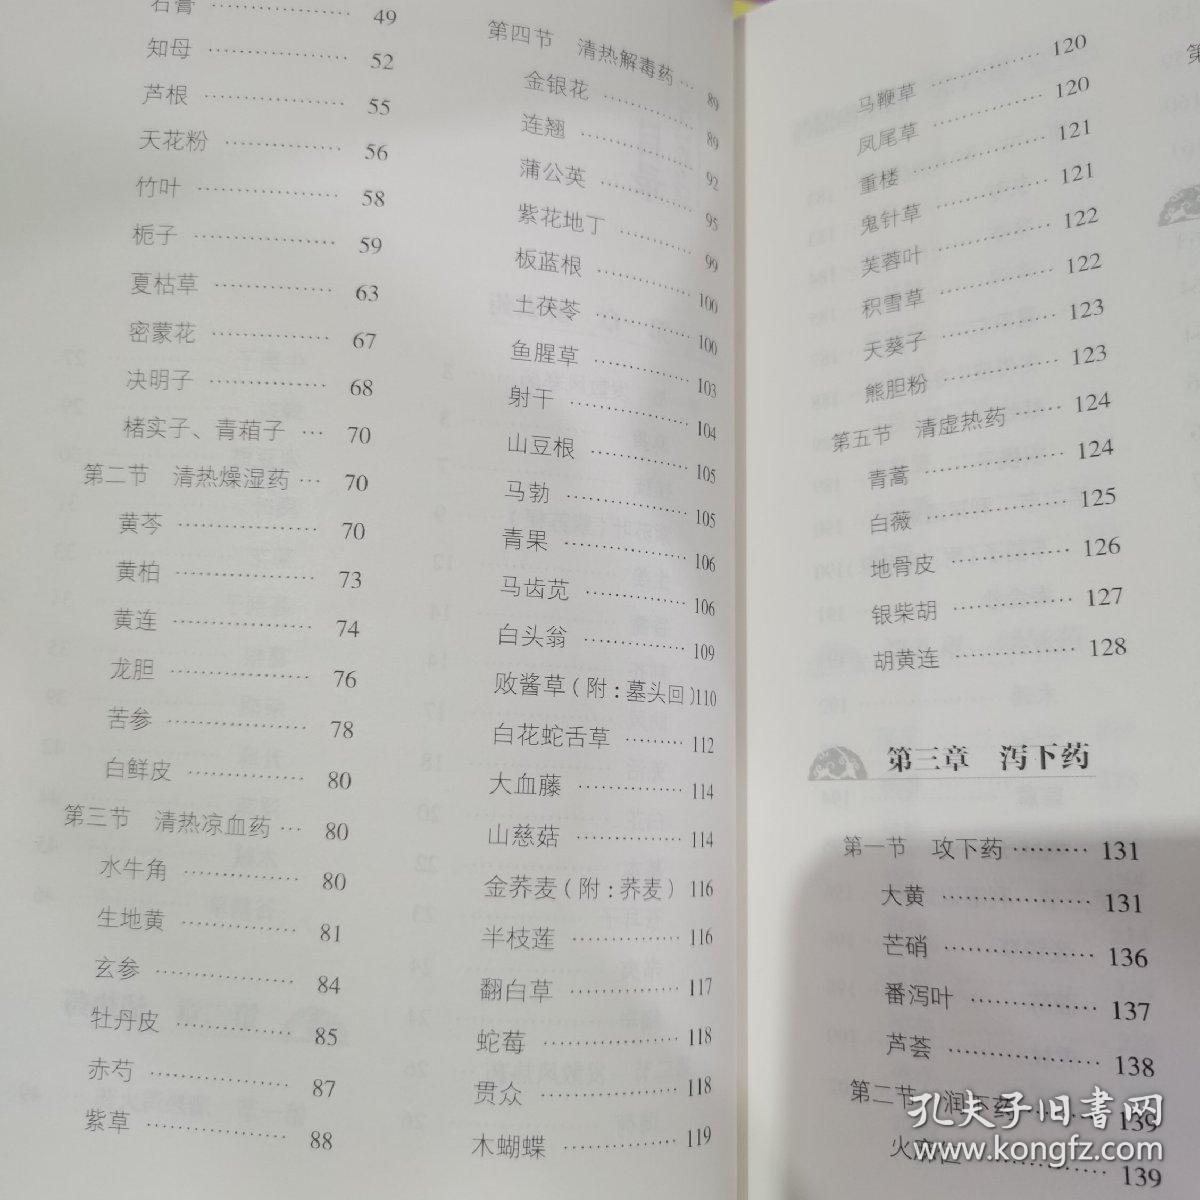 石膏 ………… 49
知母 ………… 52
芦根 ………… 55
天花粉 ………… 56
竹叶 ………… 58
栀子 ………… 59
夏枯草 ………… 63
密蒙花 ………… 67
决明子 ………… 68
楮实子、青葙子 … 70
第二节 清热燥湿药 … 70
黄芩 ………… 70
黄柏 ………… 73
黄连 ………… 74
龙胆 ………… 76
苦参 ………… 78
白鲜皮 ………… 80
第三节 清热凉血药 … 80
水牛角 ………… 80
生地黄 ………… 81
玄参 ………… 84
牡丹皮 ………… 85
赤芍 ………… 87
紫草 ………… 88
第四节 清热解毒药 … 89
金银花 ………… 89
连翘 ………… 92
蒲公英 ………… 95
紫花地丁 ………… 99
板蓝根 ………… 100
土茯苓 ………… 100
鱼腥草 ………… 103
射干 ………… 104
山豆根 ………… 105
马勃 ………… 105
青果 ………… 106
马齿苋 ………… 106
白头翁 ………… 109
败酱草(附:墓头回)110
白花蛇舌草 ……… 112
大血藤 ………… 114
山慈菇 ………… 114
金荞麦(附:荞麦) 116
半枝莲 ………… 116
翻白草 ………… 117
蛇莓 ………… 118
贯众 ………… 118
木蝴蝶 ………… 119
马鞭草 ………… 120
凤尾草 ………… 120
重楼 ………… 121
鬼针草 ………… 121
芙蓉叶 ………… 122
积雪草 ………… 122
天葵子 ………… 123
熊胆粉 ………… 123
第五节 清虚热药 …… 124
青蒿 ………… 124
白薇 ………… 125
地骨皮 ………… 126
银柴胡 ………… 127
胡黄连 ………… 128
第三章 泻下药
第一节 攻下药 ……… 131
大黄 ………… 131
芒硝 ………… 136
番泻叶 ………… 137
芦荟 ………… 138
第二节 润下药 ……… 139
火麻仁 ………… 139
孔夫子旧书网
www.kongfz.com